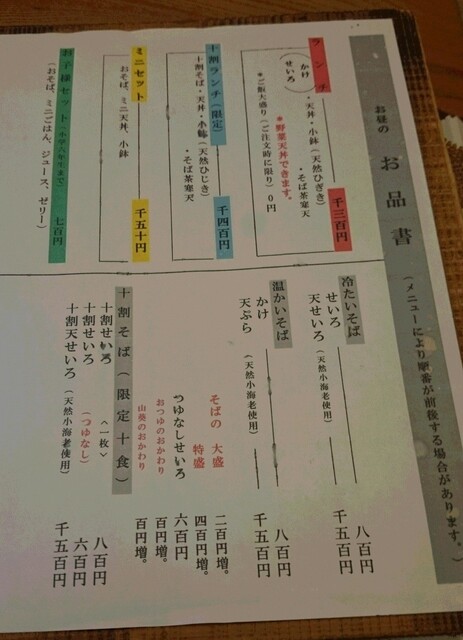 お昼の　お品書（メニューにより順番が前後する場合があります。）
ランチ　千三百円
（かけ
せいろ）
・天丼・小鉢（天然ひじき）
・そば茶寒天
＊野菜天丼できます。
＊ご飯大盛り（ご注文時に限り）0円
十割ランチ（限定）　千四百円
十割そば・天丼・小鉢（天然ひじき）
・そば茶寒天
ミニセット　千五十円
おそば、ミニ天丼、小鉢
お子様セット（小学六年生まで）　七百円
（おそば、ミニごはん、ジュース、ゼリー）
冷たいそば
せいろ　八百円
天せいろ（天然小海老使用）　千五百円
温かいそば
かけ　八百円
天ぷら（天然小海老使用）　千五百円
そばの　大盛　二百円増。
特盛　四百円増。
つゆなしせいろ　六百円
おつゆのおかわり　百円増。
山葵のおかわり　百円増。
十割そば（限定十食）
十割せいろ〈一枚〉　八百円
十割せいろ（つゆなし）　六百円
十割天せいろ（天然小海老使用）　千五百円